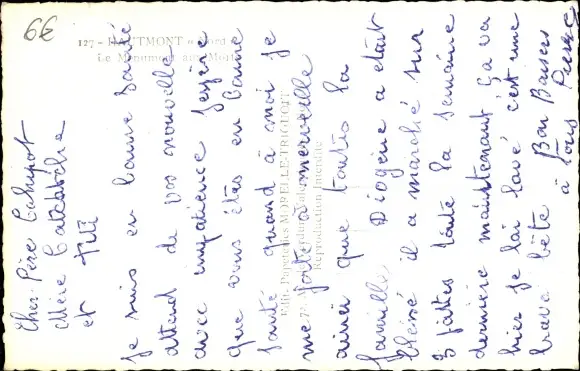 6€
127 - HAUTMONT (Nord)
Le Monument aux Morts
Edit. Papeteries MORELLE-TRIGHORT
Reproduction Interdite
Cher Père
Mère
et Titi
Je suis en bonne santé
attend de vos nouvelle
avec impatience j'espère
que vous êtes en bonne
santé quand à moi je
me porte à merveille
ainsi que toutes la
famille Diogène a était
blessé il a marché sur
3 pattes toute la semaine
dernière maintenant ça va
hier je l'ai lavé c'est une
brave bête Bon Baisers
à Tous Pierre